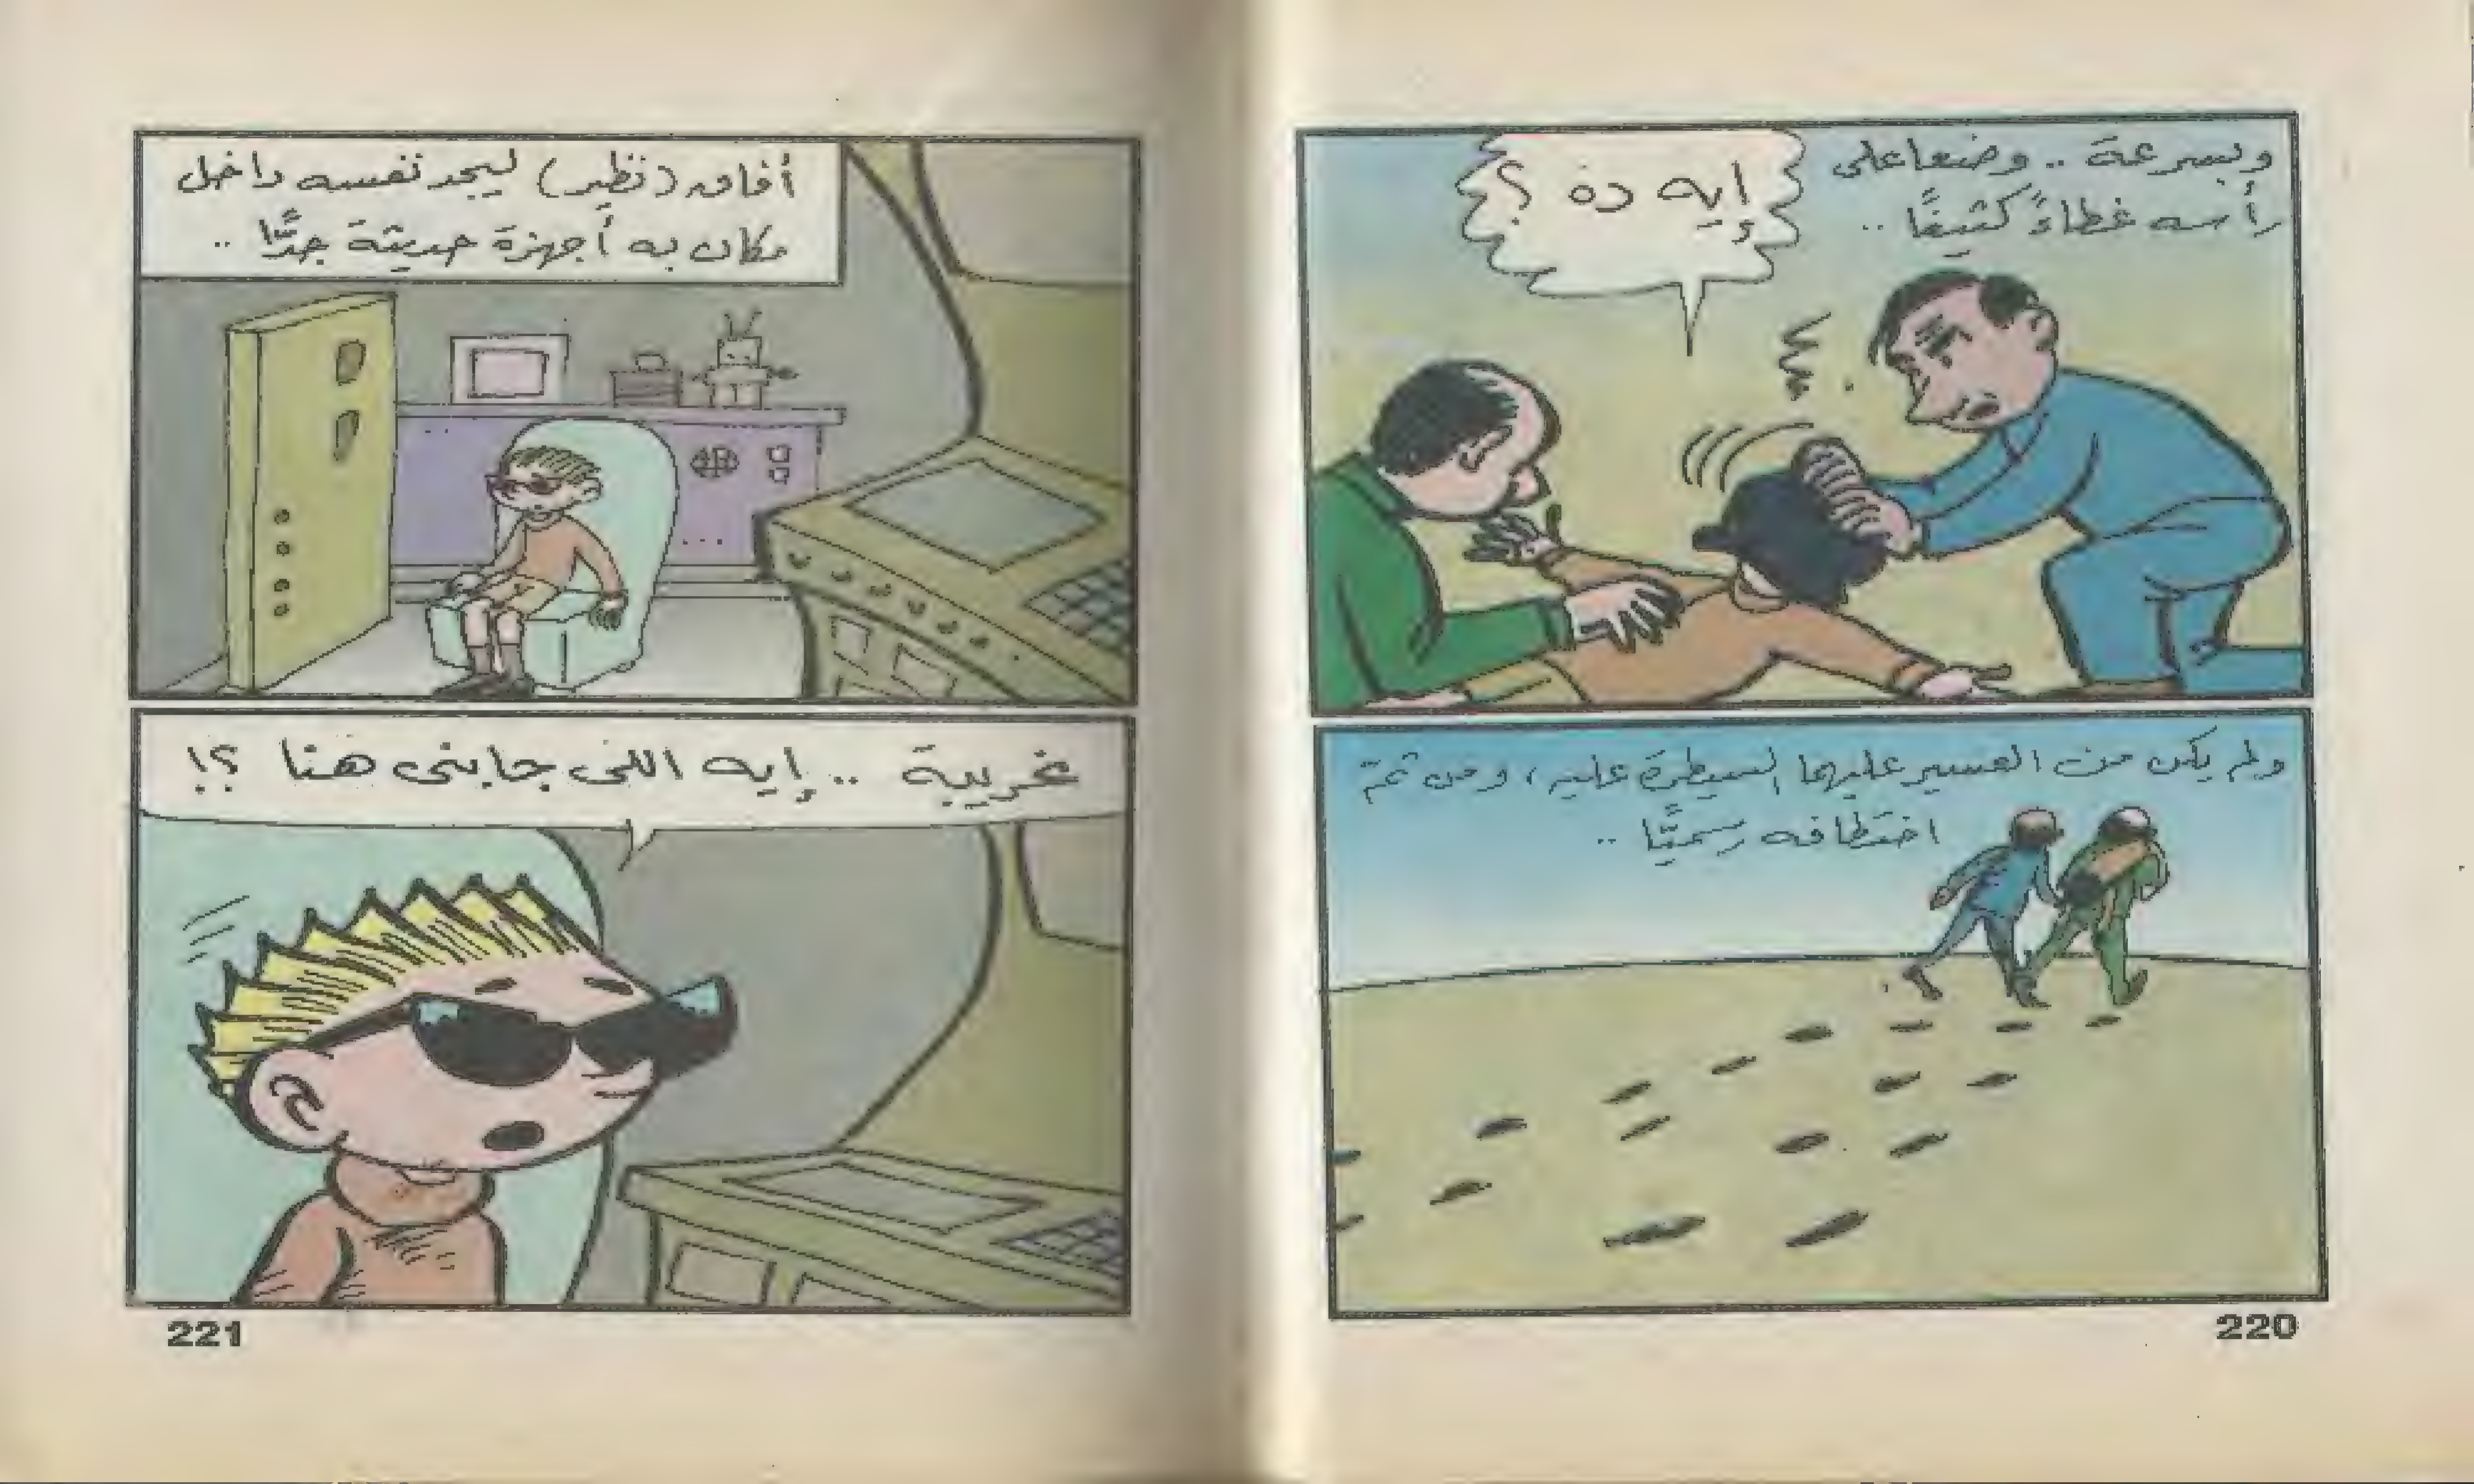 وبسرعة .. وضعا على
رأسه غطاءً كثيفًا ..
إيه ده ؟
ولم يكن من العسير عليهما السيطرة عليه ، ومن ثم تم
اختطافه رسميًّا ..
220
أفاق (نظير) ليجد نفسه داخل
مكان به أجهزة حديثة جدًّا ..
غريبة .. إيه اللى جابنى هنا ؟!
221